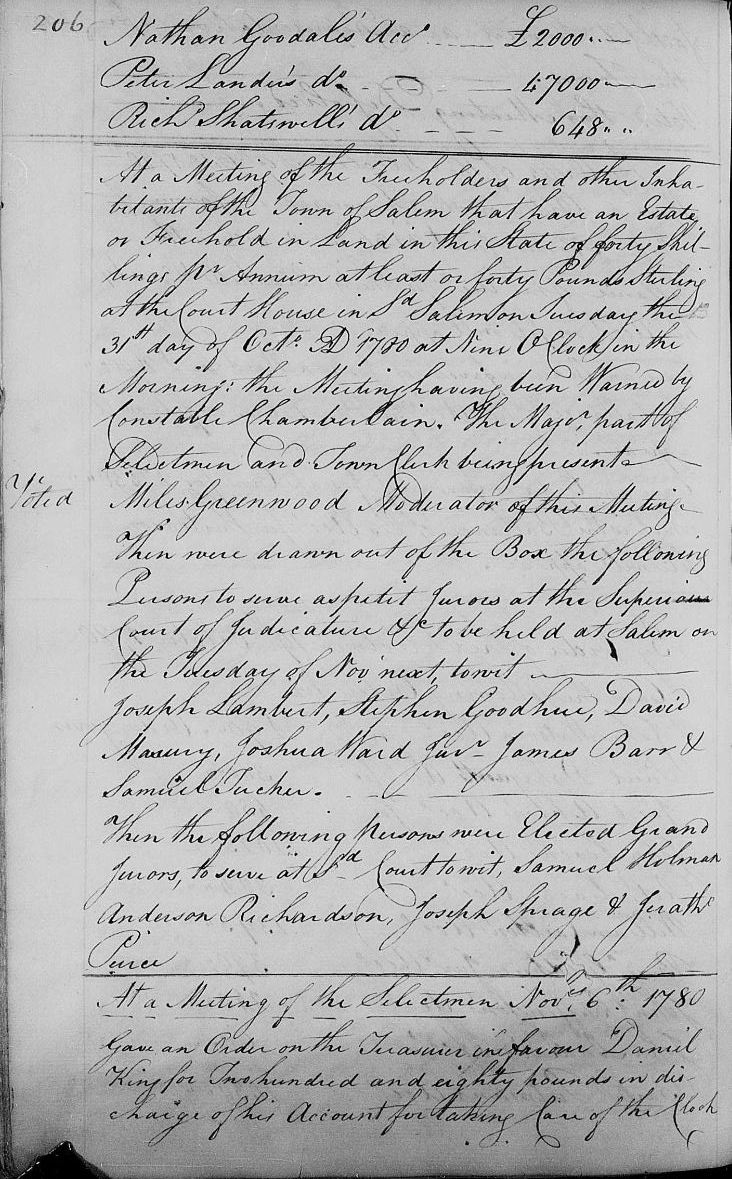 206
Nathan Goodale's Acco. £2000 " "
Peter Lander's do. 47000
Richd Shatswell's do 648 " "
At a Meeting of the Freeholders and other Inha-
bitants of the Town of Salem that have an Estate
or Freehold in Land in this State of forty Shil-
lings pr Annum at least or forty Pounds Sterling
at the Court House in Sd Salem on Tuesday the
31st day of Octo. AD 1780 at Nine O Clock, in the
Morning: the Meeting having been Warned by
Constable Chamberlain. The Major part of
Selectmen and Town Clerk being present
Voted Miles Greenwood Moderator of this Meeting
Then were drawn out of the Box the following
Persons to serve as petit Jurors at the Superiour
Court of Judicature &c to be held at Salem on
the Tuesday of Nov next, towit
Joseph Lambert, Stephen Goodhue, David
Masury, Joshua Ward Junr James Barr &
Samuel Tucker.
Then the following Persons were Elected Grand
Jurors, to serve at Sd Court towit, Samuel Holman
Anderson Richardson, Joseph Sprage & Jerathl
Peirce
At a Meeting of the Selectmen Novr 6th: 1780
Gave an Order on the Treasurer in favour Daniel
King for Two hundred and eighty pounds in dis-
charge of his Account for taking Care of the Clock